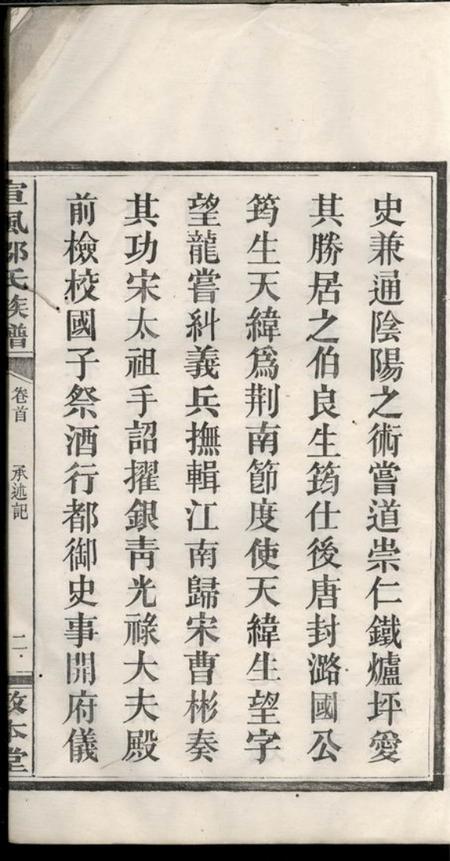 史兼通陰陽之術嘗道崇仁鐵爐坪愛
其勝居之伯良生筠仕後唐封潞國公
筠生天緯爲荆南節度使天緯生望字
望龍嘗糾義兵撫輯江南歸宋曹彬奏
其功宋太祖手詔擢銀靑光祿大夫殿
前檢校國子祭酒行都御史事開府儀
宣風鄒氏族譜
卷首
承述記
二
敦本堂